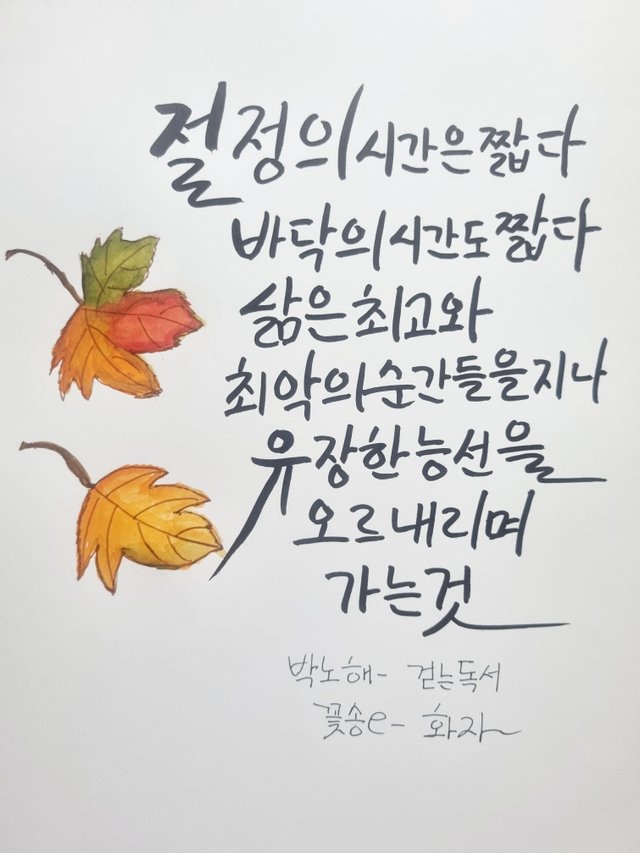 절정의 시간은 짧다
바닥의 시간도 짧다
삶은 최고와
최악의 순간들을 지나
유장한 능선을
오르내리며
가는 것
박노해- 걷는독서
꽃송e- 화자